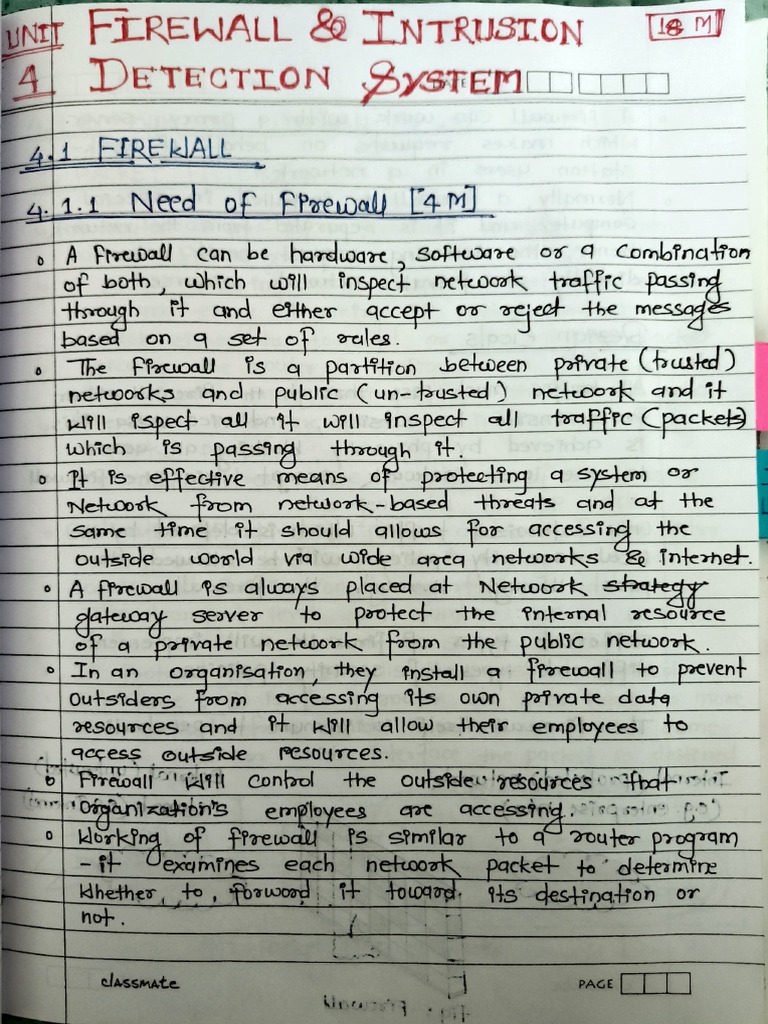 UNIT FIREWALL & INTRUSION [18 M]
4 DETECTION SYSTEM
4.1 FIREWALL
4.1.1 Need of Firewall [4 M]
A firewall can be hardware, software or a combination
of both, which will inspect network traffic passing
through it and either accept or reject the messages
based on a set of rules.
The firewall is a partition between private (trusted)
networks and public (un-trusted) network and it
will ispect all it will inspect all traffic (packets)
which is passing through it.
It is effective means of protecting a system or
Network from network-based threats and at the
same time it should allows for accessing the
outside world via wide area networks & internet.
A firewall is always placed at Network strategy
gateway server to protect the internal resource
of a private network from the public network.
In an organisation, they install a firewall to prevent
outsiders from accessing its own private data
resources and it will allow their employees to
access outside resources.
Firewall will control the outside resources that
organization's employees are accessing.
Working of firewall is similar to a router program
- it examines each network packet to determine
whether to forword it toward its destination or
not.
classmate PAGE